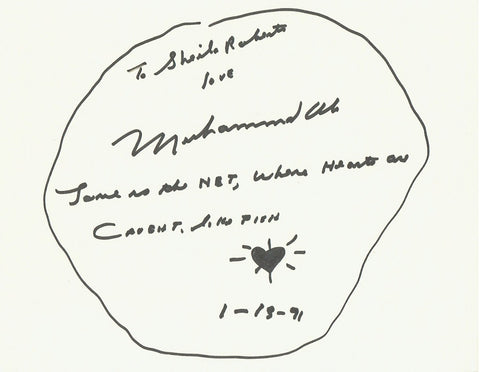 To Sheila Roberts
love
Muhammad Ali
Fame is the NET, where Hearts are
CAUGHT, like FISH
1-13-91